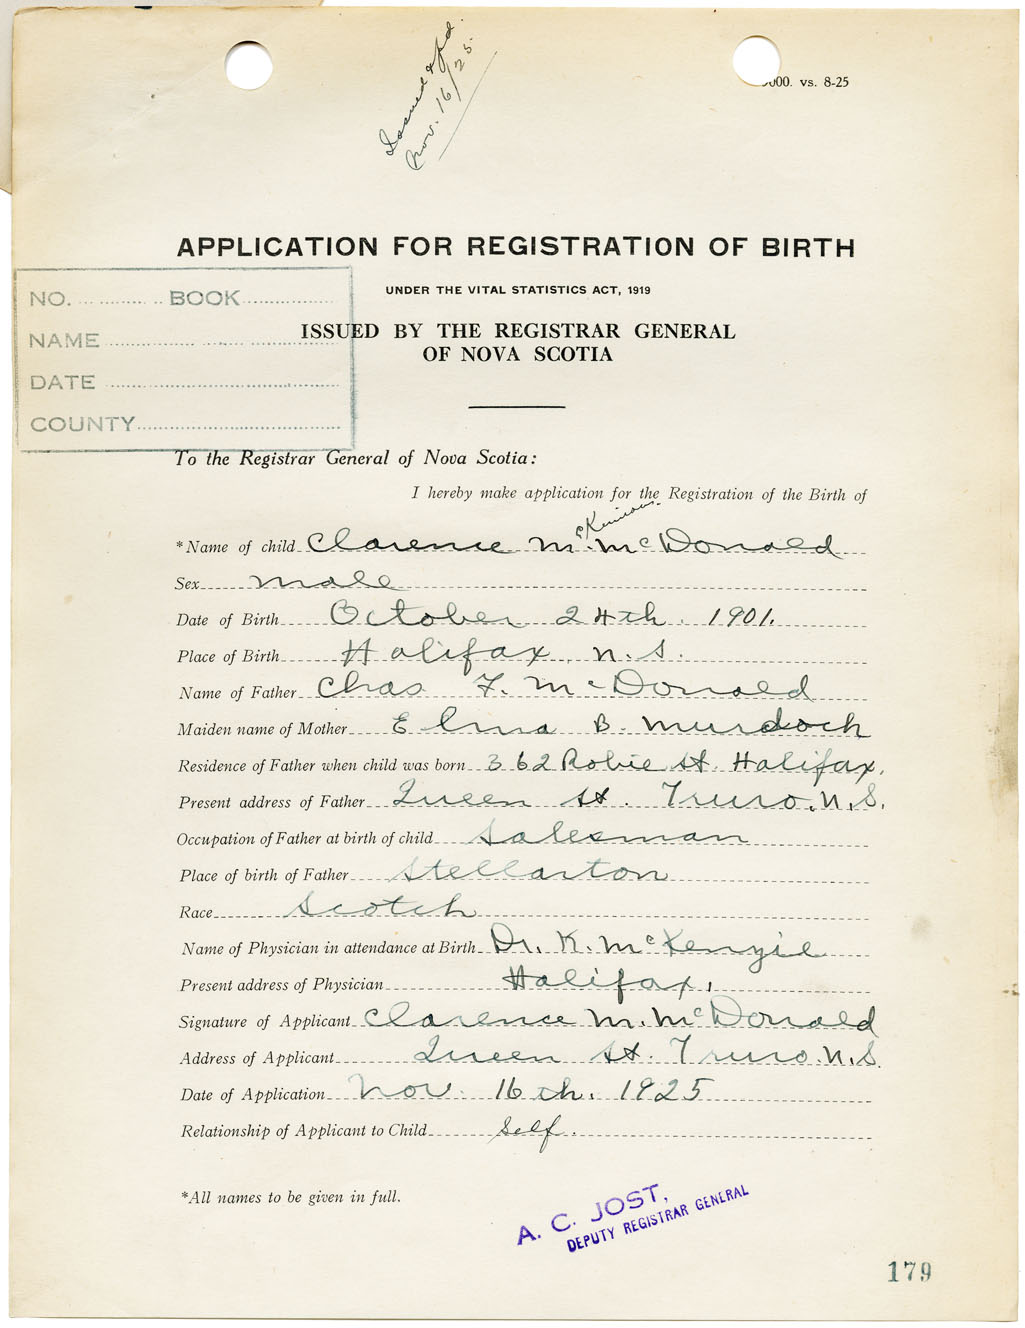 Issued & pd.
Nov. 16/25.
000. vs. 8-25
APPLICATION FOR REGISTRATION OF BIRTH
UNDER THE VITAL STATISTICS ACT, 1919
ISSUED BY THE REGISTRAR GENERAL
OF NOVA SCOTIA
NO. BOOK
NAME
DATE
COUNTY
To the Registrar General of Nova Scotia:
I hereby make application for the Registration of the Birth of
*Name of child Clarence M. McDonald
Sex male
Date of Birth October 24th. 1901.
Place of Birth Halifax, N.S.
Name of Father Chas F. McDonald
Maiden name of Mother Elma B. Murdoch
Residence of Father when child was born 362 Robie St. Halifax.
Present address of Father Queen St. Truro, N.S.
Occupation of Father at birth of child Salesman
Place of birth of Father Stellarton
Race Scotch
Name of Physician in attendance at Birth Dr. K. McKenzie
Present address of Physician Halifax,
Signature of Applicant Clarence M. McDonald
Address of Applicant Queen St. Truro. N.S.
Date of Application Nov. 16th. 1925
Relationship of Applicant to Child Self.
*All names to be given in full.
A. C. JOST,
DEPUTY REGISTRAR GENERAL
179